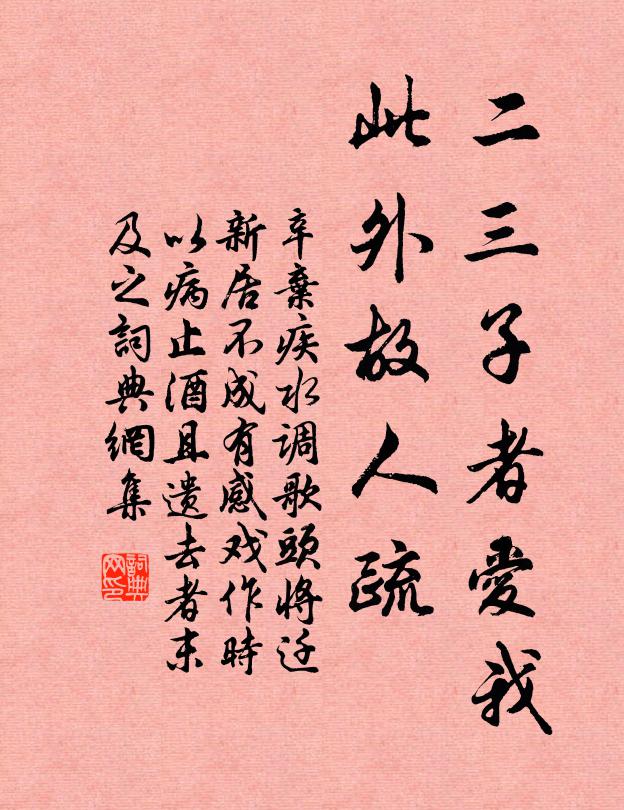 二三子者愛我
此外故人疏
辛棄疾水调歌頭將迁
新居不成有感戏作時
以病止酒且遗去者末
及之詞典網集
詞典网印